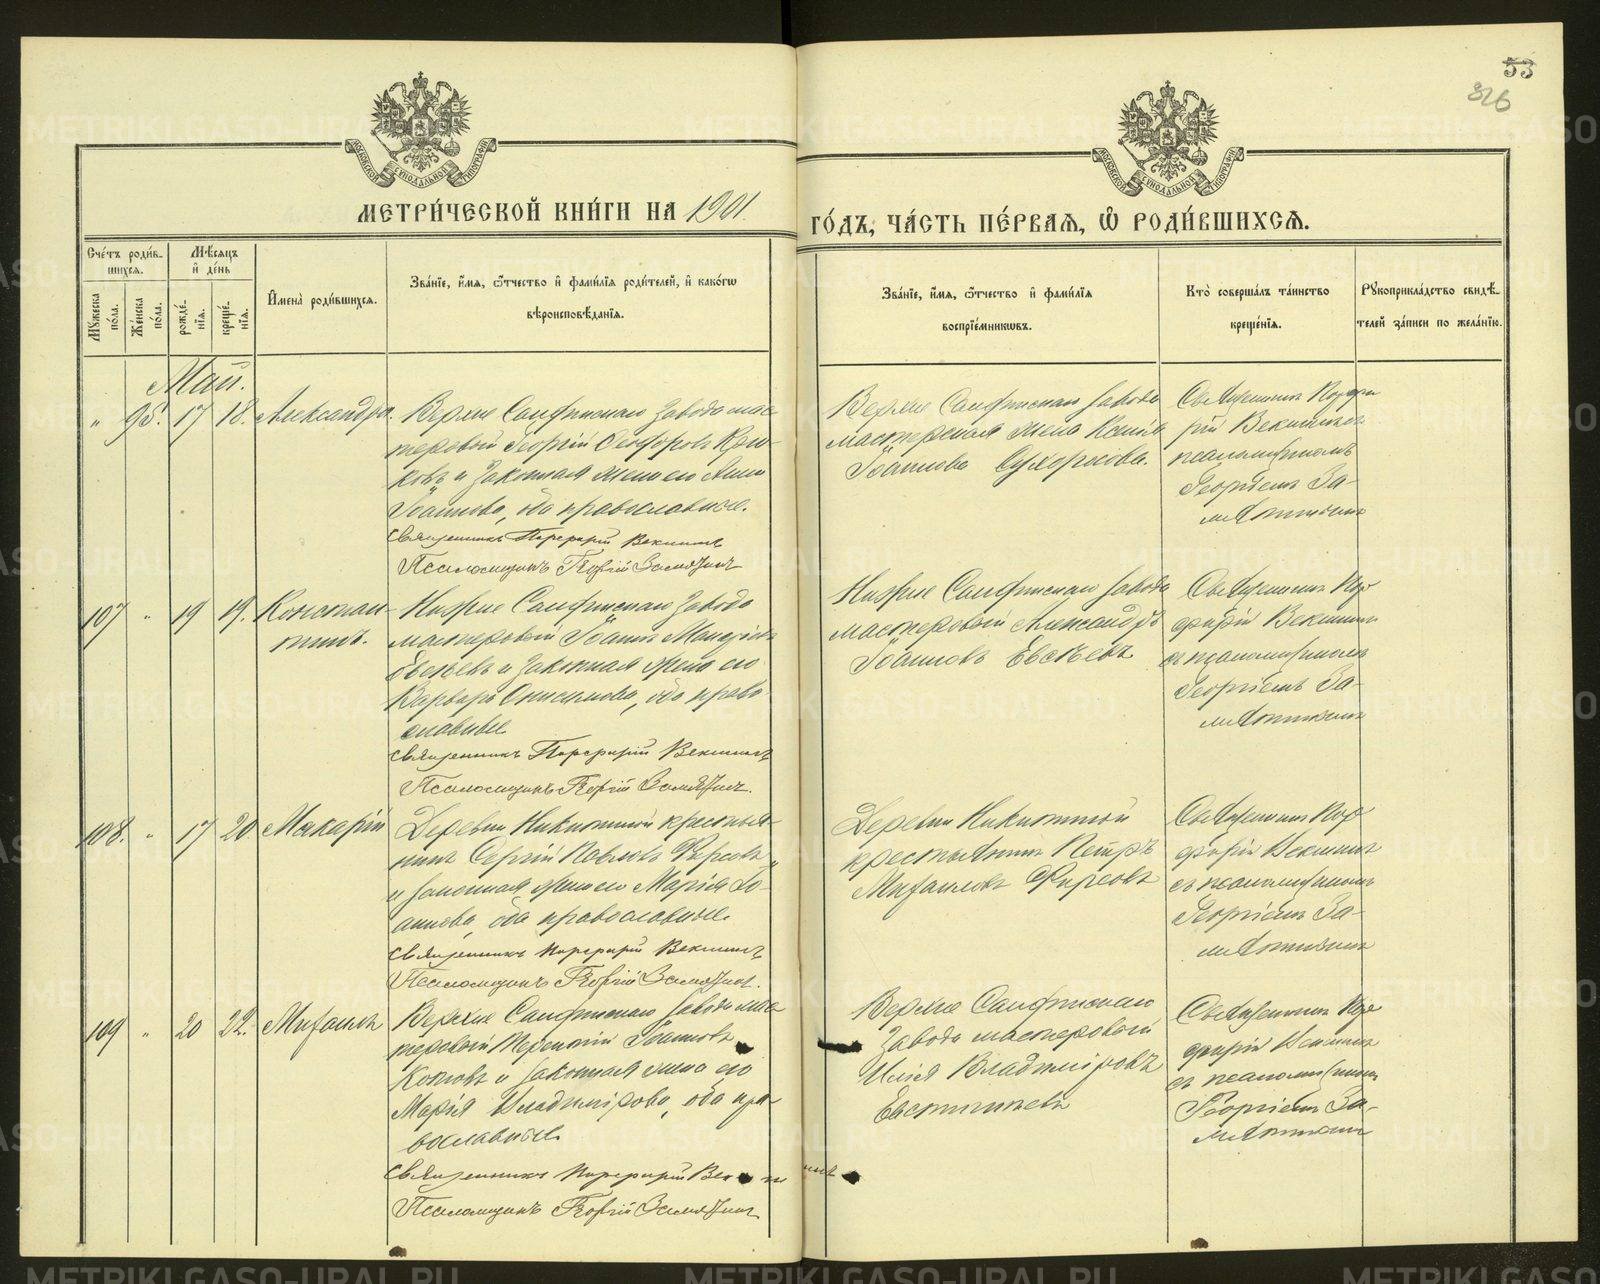 53
326
МОСКОВСКОЙ СѴНОДАЛЬНОЙ ТИПОГРАФІИ
МОСКОВСКОЙ СѴНОДАЛЬНОЙ ТИПОГРАФІИ
МЕТРИ́ЧЕСКОЙ КНИ́ГИ НА 1901
ГО́ДЪ, ЧА́СТЬ ПЕ́РВАЯ, Ѡ҆ РОДИ́ВШИХСЯ.
Сче́тъ роди́в-
шихся.
Мꙋжеска по́ла.
Же́нска по́ла.
Мѣ́сяцъ
и҆ де́нь
рожде́-
нїя.
креще́-
нїя.
И҆мена̀ роди́вшихся.
Зва́нїе, и҆́мя, ѻ҆́тчество и҆ фами́лїя роди́телей, и҆ како́гѡ
вѣроисповѣ́данїя.
Зва́нїе, и҆́мя, ѻ҆́тчество и҆ фами́лїя
воспрїе́мникѡвъ.
Кто̀ соверша́лъ та́инство
креще́нїя.
Рꙋкоприкла́дство свидѣ́-
телей за́писи по жела́нїю.
Май.
" 95. 17 18. Александра.
Верхне Салдинскаго Завода мас-
теровой Георгій Ѳеодоровъ
и законная жена его Анна
Іоаннова, оба православные.
Священникъ Порфирій Векшинъ
Псаломщикъ Георгій Замятинъ
Верхне Салдинскаго завода
мастерская жена Ксенія
Іоаннова
Священникъ Порфи-
рій Векшинъ
псаломщикомъ
Георгіемъ За-
мятинымъ
107 " 19 19. Констан-
тинъ.
Нижне Салдинскаго Завода
мастеровой Іоаннъ
Евсѣевъ и законная жена его
Варвара Онисимова, оба право-
славные
Священникъ Порфирій Векшинъ
Псаломщикъ Георгій Замятинъ.
Нижне Салдинскаго завода
мастеровой Александръ
Іоанновъ Евсѣевъ
Священникъ Пор-
фирій Векшинъ
съ псаломщикомъ
Георгіемъ За-
мятинымъ
108. " 17 20. Макарій
Деревни Никитиной крестья-
нинъ Сергій Павловъ Фирсовъ
и законная жена его Марія Іо-
аннова, оба православные.
Священникъ Порфирій Векшинъ
Псаломщикъ Георгій Замятинъ.
Деревни Никитиной
крестьянинъ Петръ
Михаиловъ Фирсовъ
Священникъ Пор-
фирій Векшинъ
съ псаломщикомъ
Георгіемъ За-
мятинымъ
109 " 20 22. Михаилъ
Верхне Салдинскаго завода мас-
теровой Терентій Іоанновъ
и законная жена его
Марія Владимірова, оба пра-
вославные.
Священникъ Порфирій Векшинъ
Псаломщикъ Георгій Замятинъ
Верхне Салдинскаго
Завода мастеровой
Илія Владиміровъ
Евстигнѣевъ
Священникъ Пор-
фирій Векшинъ
съ псаломщикомъ
Георгіемъ За-
мятинымъ
METRIKI.GASO-URAL.RU